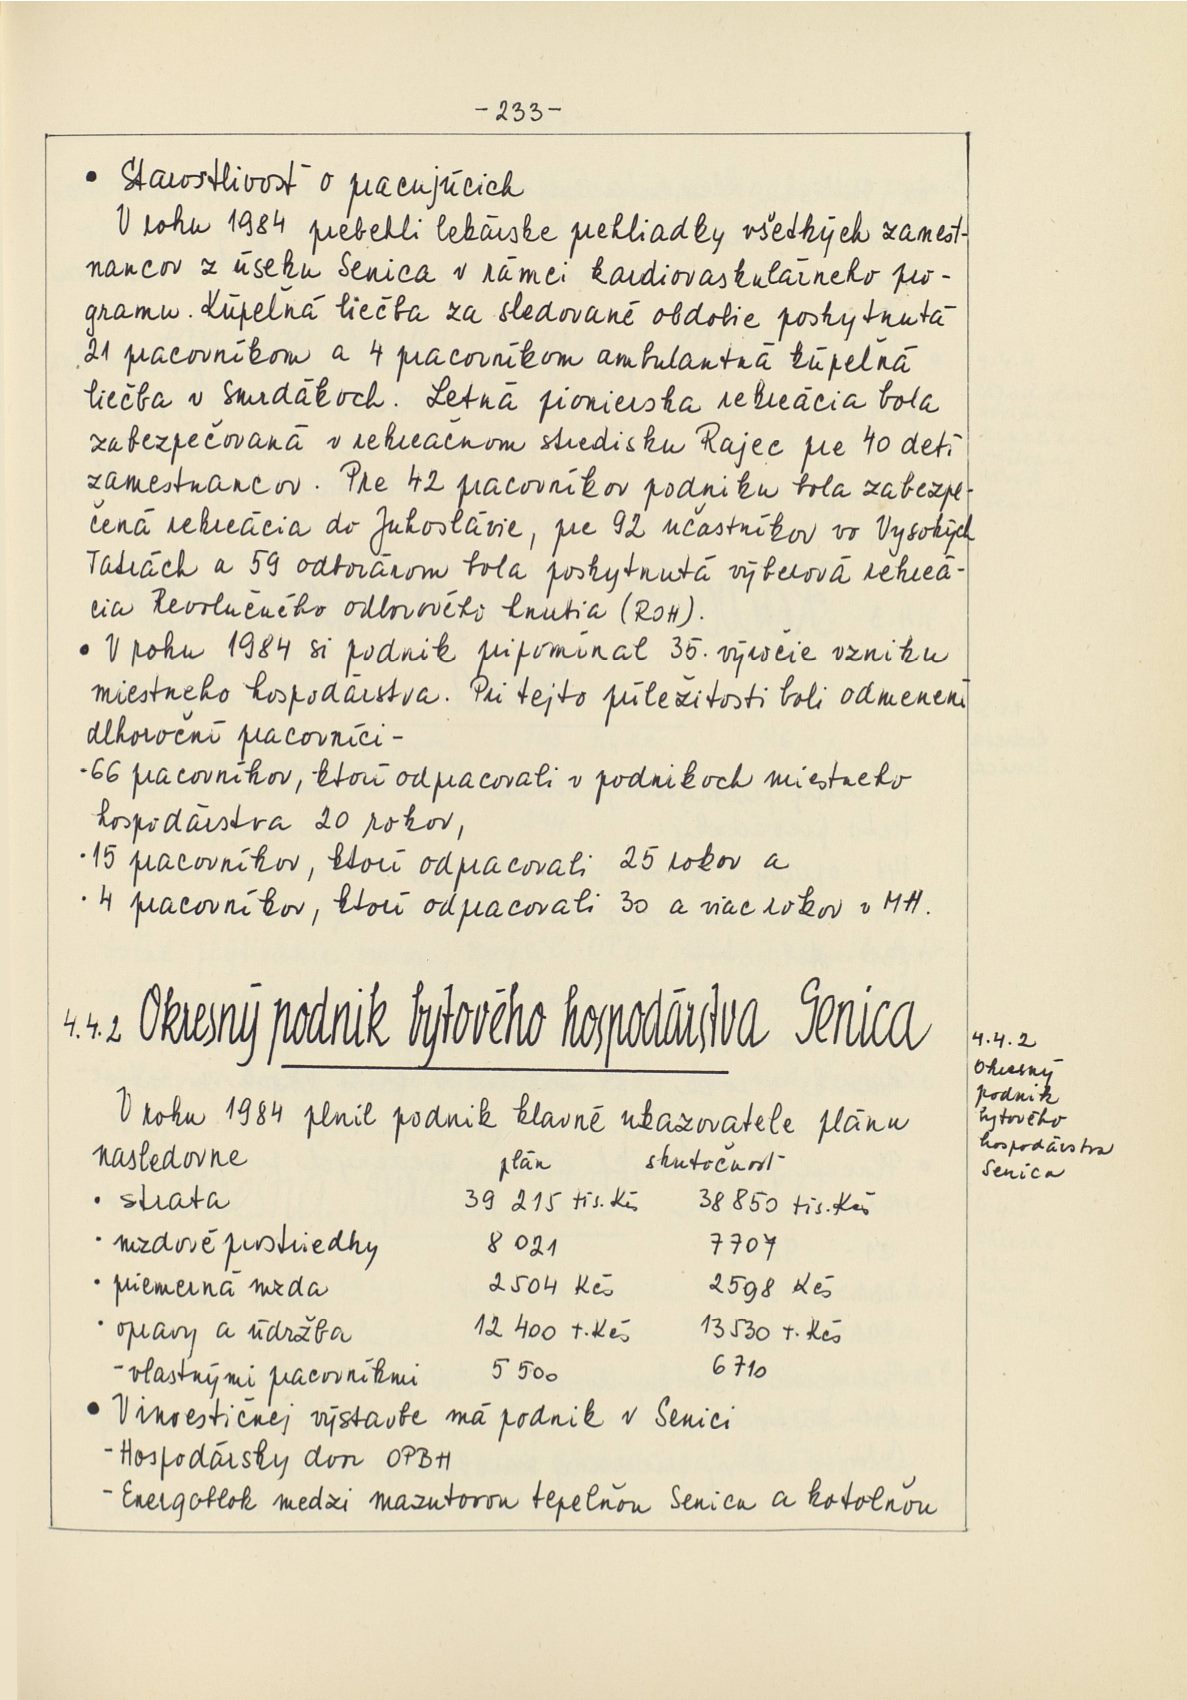 -233-
• Starostlivosť o pracujúcich
V roku 1984 prebehli lekárske prehliadky všetkých zamest-
nancov z úseku Senica v rámci kardiovaskulárneho pro-
gramu. Kúpeľná liečba za sledované obdobie poskytnutá
21 pracovníkom a 4 pracovníkom ambulantná kúpeľná
liečba v Smrdákoch. Letná pionierska rekreácia bola
zabezpečovaná v rekreačnom stredisku Rajec pre 40 detí
zamestnancov. Pre 42 pracovníkov podniku bola zabezpe-
čená rekreácia do Juhoslávie, pre 92 učastníkov vo Vysokých
Tatrách a 59 odborárom bola poskytnutá výberová rekreá-
cia Revolučného odborového hnutia (ROH).
• V roku 1984 si podnik pripomínal 35. výročie vzniku
miestneho hospodárstva. Pri tejto príležitosti boli odmenení
dlhoroční pracovníci -
·66 pracovníkov, ktorí odpracovali v podnikoch miestneho
hospodárstva 20 rokov,
·15 pracovníkov, ktorí odpracovali 25 rokov a
·4 pracovníkov, ktorí odpracovali 30 a viac rokov v MH.
4.4.2 Okresný podnik bytového hospodárstva Senica
4.4.2
Okresný
podnik
bytového
hospodárstva
Senica
V roku 1984 plnil podnik hlavné ukazovatele plánu
nasledovne plán skutočnosť
· strata 39 215 tis. Kčs 38 850 tis. Kčs
· mzdové prostriedky 8 021 7707
· priemerná mzda 2504 Kčs 2598 Kčs
· opravy a údržba 12 400 t. Kčs 13530 t. Kčs
- vlastnými pracovníkmi 5 500 6710
• V investičnej výstavbe má podnik v Senici
- Hospodársky dvor OPBH
- Energoblok medzi mazutovou tepelňou Senica a kotolňou